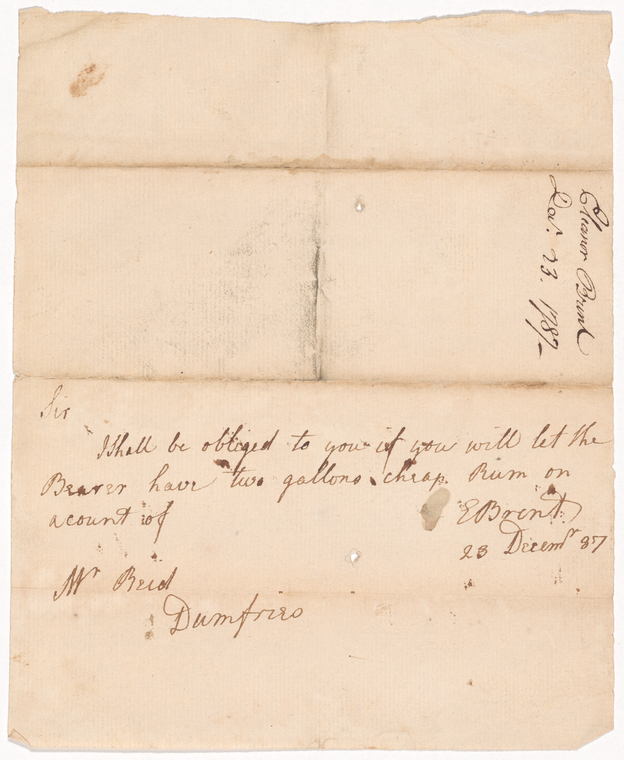 Eleanor Brent
Dec.r 23. 1787
Sir
I Shall be obliged to you if you will let the
Bearer have two gallons cheap Rum on
acount of
E Brent
23 Decemr 87
Mr Reid
Dumfries